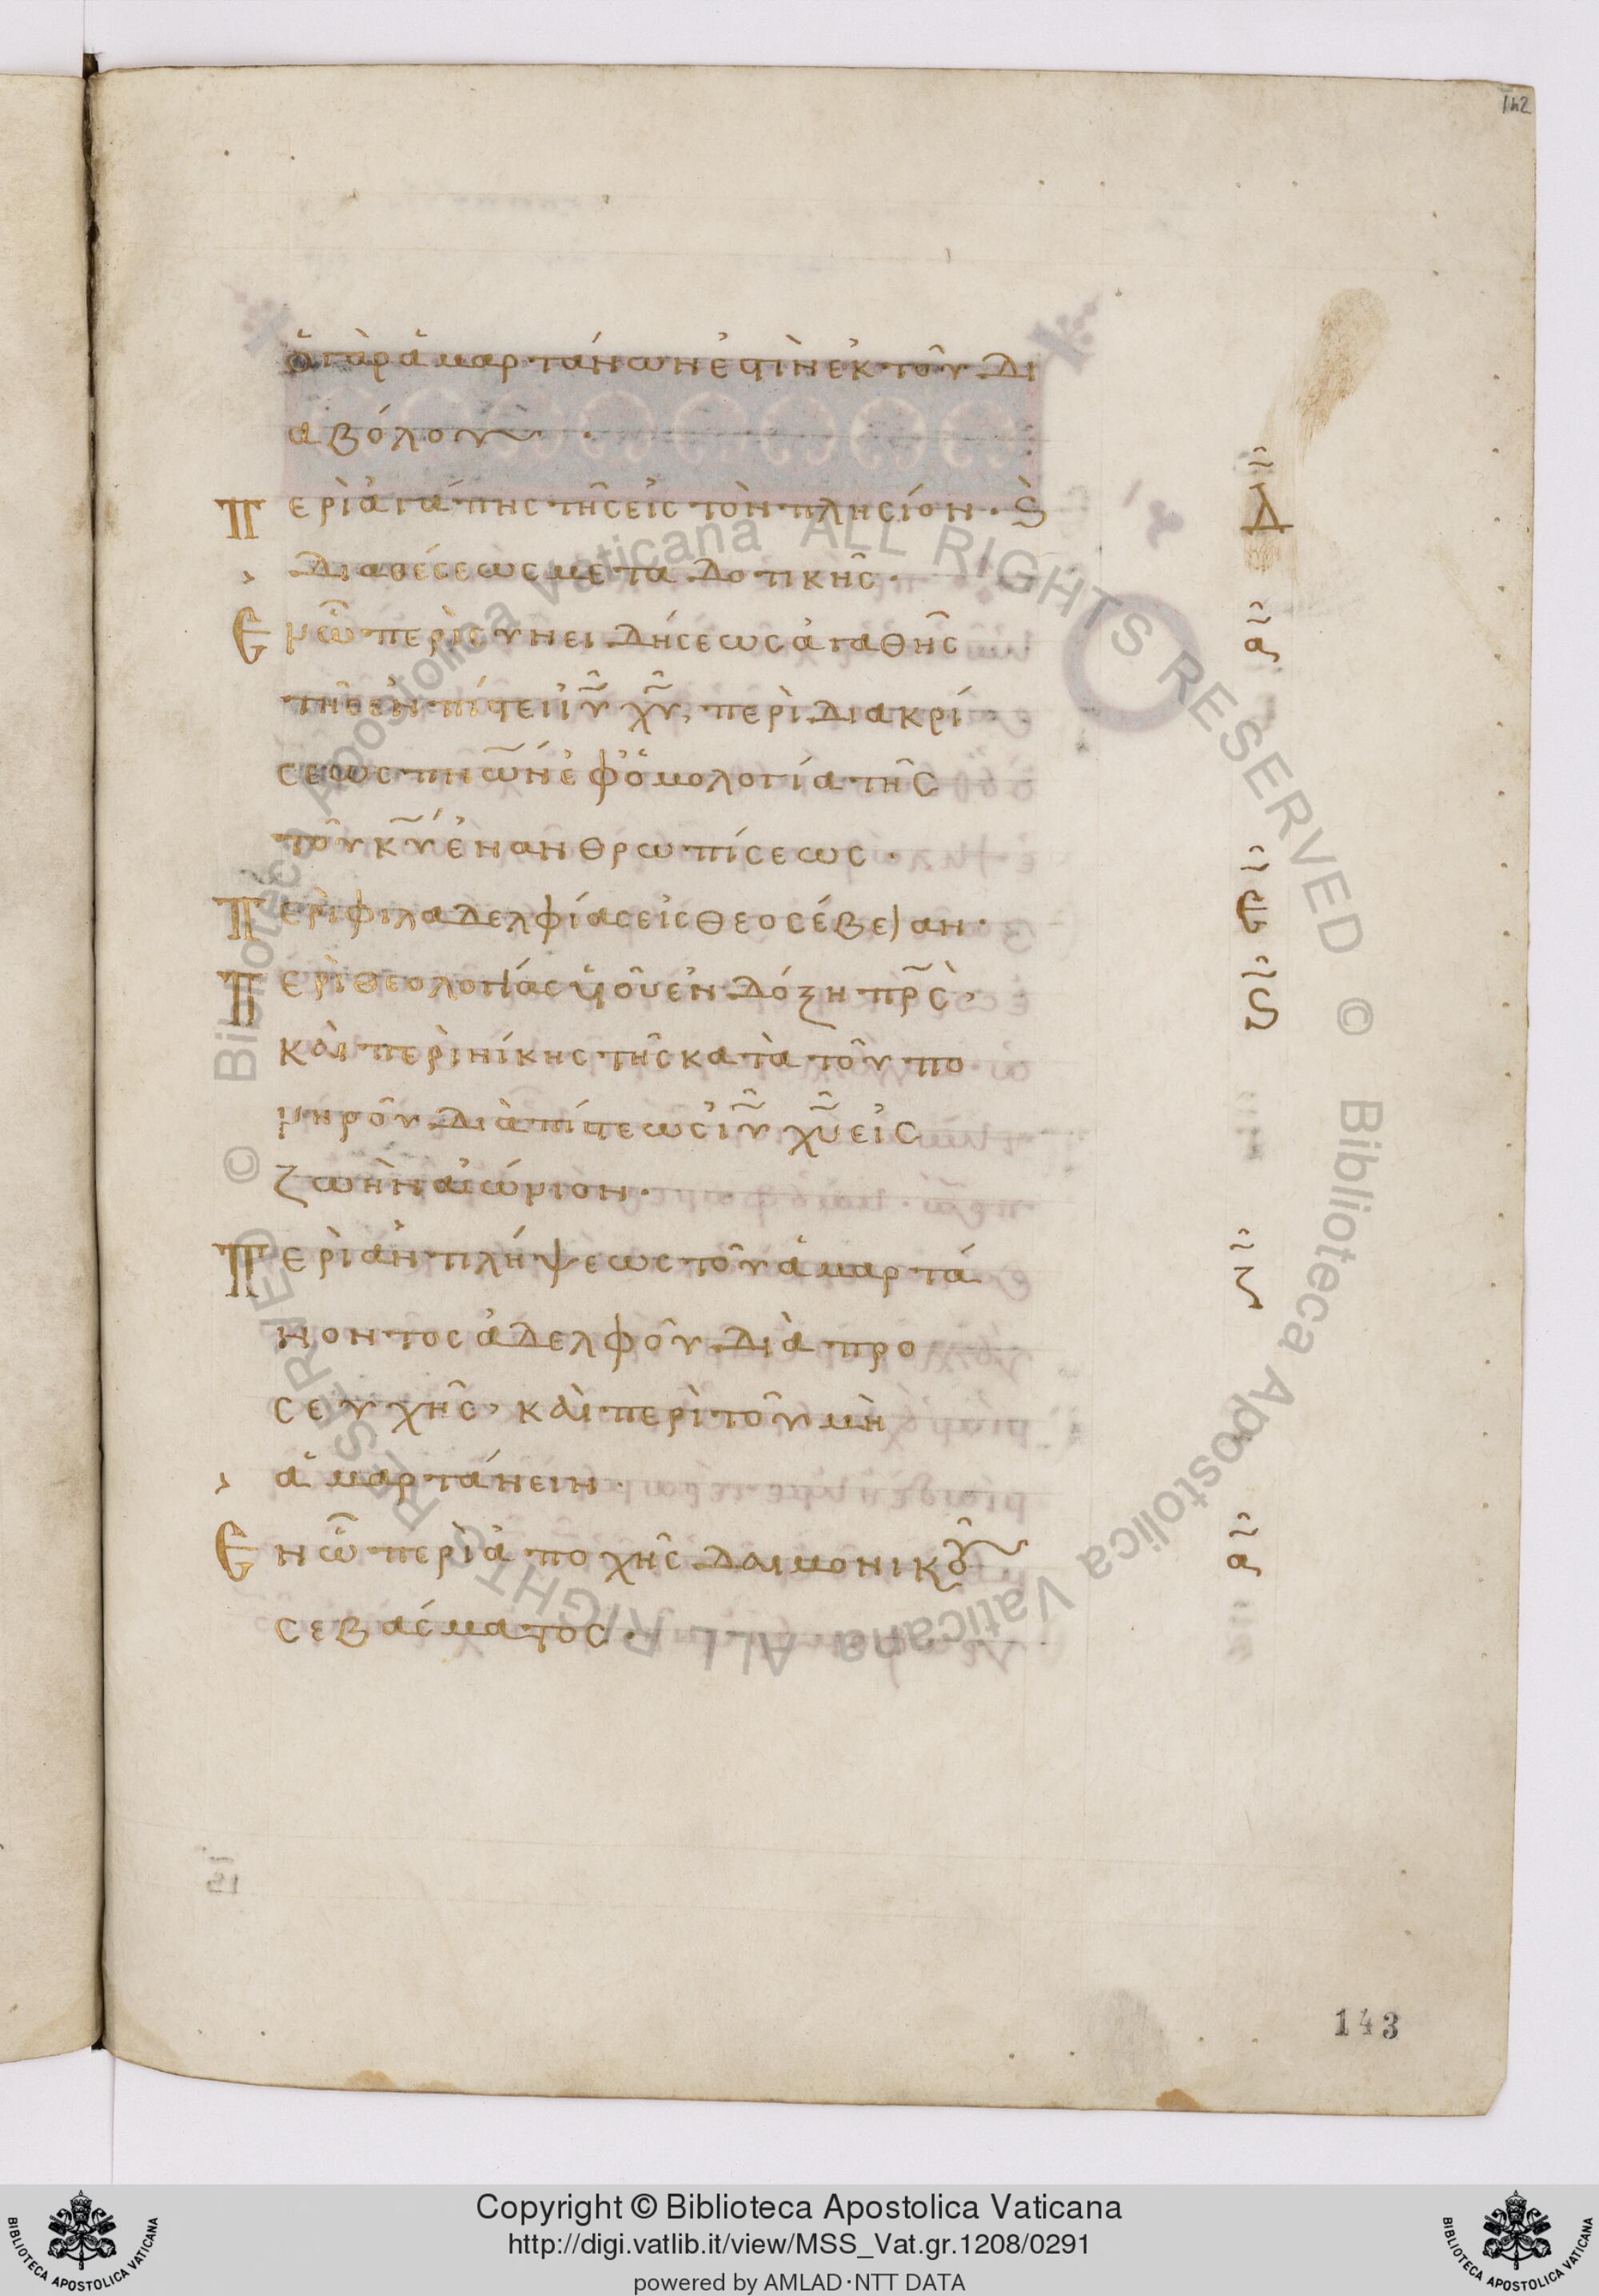 142
ὁ γὰρ ἁμαρτάνων ἐστὶν ἐκ τοῦ δι
αβόλου ·
Περὶ ἀγάπης τῆς εἰς τὸν πλησίον · Ϗ Δ
διαθέσεως μεταδοτικῆς ·
Εν ὧ περὶ συνειδήσεως ἀγαθῆς α
τῆς ἐν πίστει ἰῦ χῦ, περὶ διακρί
σεως πνων ἐφ ὁμολογία τῆς
τοῦ κῦ ἐνανθρωπίσεως ·
Περὶ φιλαδελφίας εἰς θεοσέβειαν · Ε
Περὶ θεολογίας υἱοῦ ἐν δόξη πρς, Ϛ
καὶ περὶ νίκης τῆς κατὰ τοῦ πο
νηροῦ διὰ πίστεως ἰῦ χῦ εἰς
ζωὴν αἰώνιον ·
Περὶ ἀντιλήψεως τοῦ ἁμαρτά Ζ
νοντος ἀδελφοῦ διὰ προ
σευχῆς, καὶ περὶ τοῦ μὴ
ἁμαρτάνειν ·
Εν ὧ περὶ ἀποχῆς δαιμονικοῦ α
σεβάσματος ·
143
© Biblioteca Apostolica Vaticana ALL RIGHTS RESERVED
© Biblioteca Apostolica Vaticana ALL RIGHTS RESERVED
Copyright © Biblioteca Apostolica Vaticana
http://digi.vatlib.it/view/MSS_Vat.gr.1208/0291
powered by AMLAD·NTT DATA
BIBLIOTECA APOSTOLICA VATICANA
BIBLIOTECA APOSTOLICA VATICANA